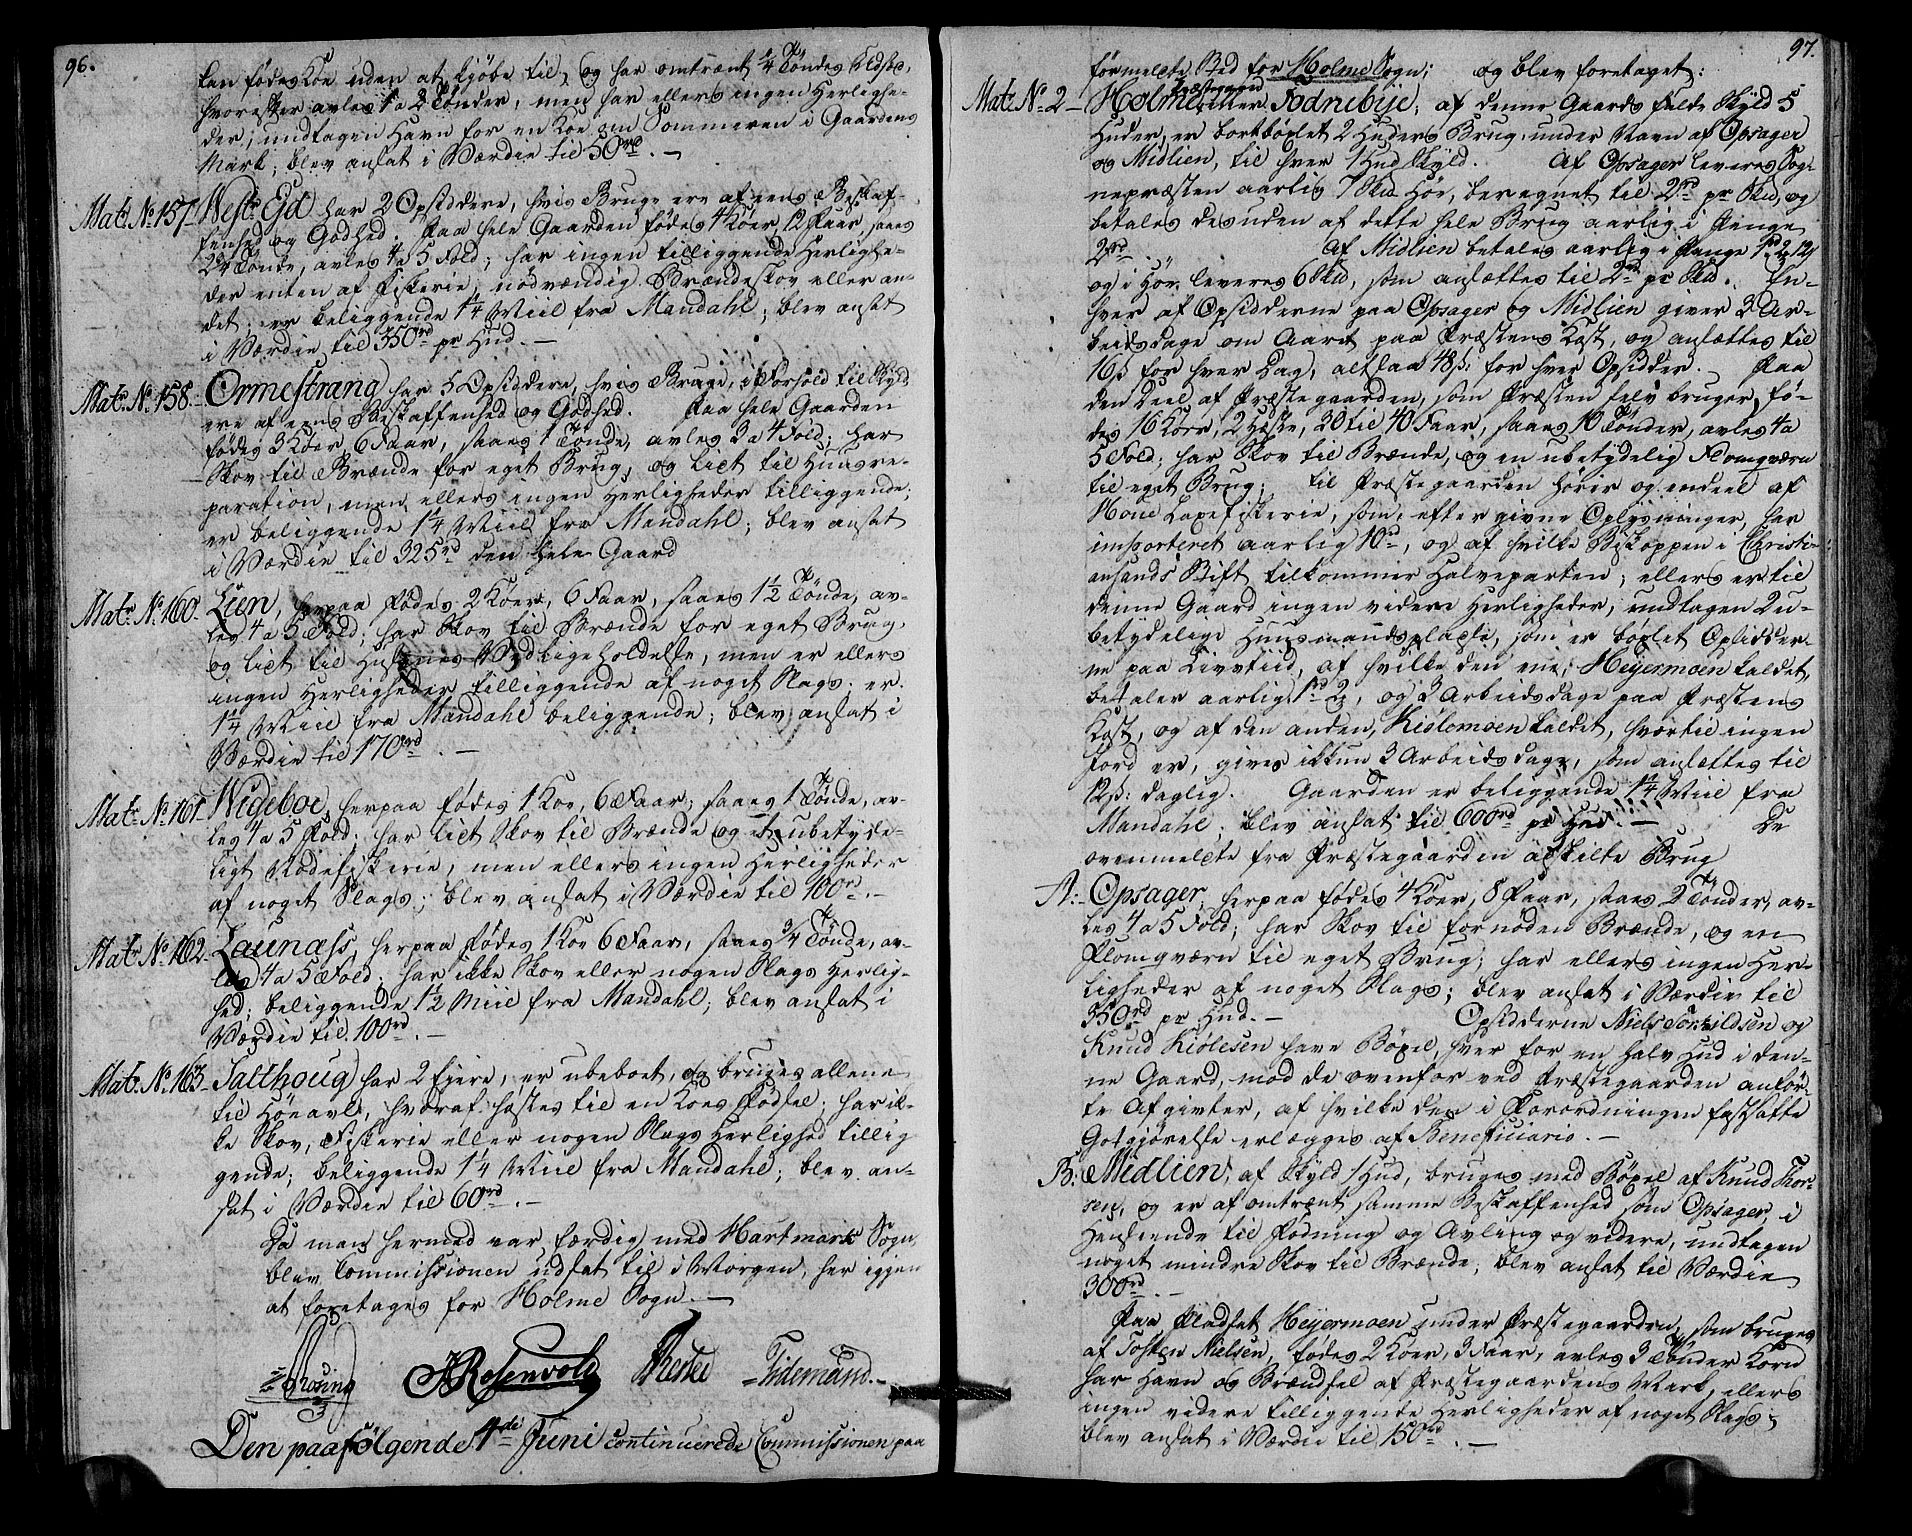 96.
kan fødes Koe uden at kjøbe til, og har omtrent 1/4 Tøndes Udsæd,
hvorefter avles 1 a 2 Tønder, men har ellers ingen Herlighe-
der, undtagen Havn for en Koe om Sommeren i Gaardens
Mark; blev ansat i Værdie til 50rd. —
Matr: No. 157 – Westr: Eid har 2 Opsiddere, hvis Bruge ere af eens Beskaf-
fenhed og Godhed. Paa hele Gaarden fødes 4 Køer, 12 Faar, saaes
2 1/4 Tønde, avles 4 a 5 Fold; har ingen tilliggende Herlighe-
der enten af Fiskerie, nødvændig Brændeskov eller an-
det; er beliggende 1 1/4 Miil fra Mandahl; blev ansat
i Værdie til 350rd pr Hud. —
Matr: No. 158 – Ormestrang har 5 Opsiddere, hvis Bruge, i Forhold til Skyld
ere af eens Beskaffenhed og Godhed. Paa hele Gaarden
fødes 3 Køer, 6 Faar, saaes 1 Tønde, avles 3 a 4 Fold; har
Skov til Brænde for eget Brug, og lidt til Huusre-
paration, men ellers ingen Herligheder tilliggende;
er beliggende 1 1/4 Miil fra Mandahl; blev ansat
i Værdie til 325rd den hele Gaard
Matr: No. 160 – Lien, herpaa fødes 2 Køer, 6 Faar, saaes 1 1/2 Tønde, av-
les 4 a 5 Fold; har Skov til Brænde for eget Brug,
og lidt til Husenes Vedligeholdelse, men er ellers
ingen Herligheder tilliggende af noget Slags; er
1 1/4 Miil fra Mandahl beliggende; blev ansat i
Værdie til 170rd. —
Matr: No. 161 – Wigeboe, herpaa fødes 1 Koe, 6 Faar, saaes 1 Tønde, av-
les 4 a 5 Fold; har lidt Skov til Brænde og et ubetyde-
ligt Nodefiskerie, men ellers ingen Herligheder
af noget Slags; blev ansat i Værdie til 100rd. —
Matr: No. 162 – Launæss, herpaa fødes 1 Koe 6 Faar, saaes 3/4 Tønde, av-
les 4 a 5 Fold; har ikke Skov eller nogen Slags Herlig-
hed; beliggende 1 1/2 Miil fra Mandahl; blev ansat i
Værdie til 100rd. —
Matr: No. 163 – Salthoug har 2 Ejere, er ubeboet, og bruges allene
til Høeavl, hvoraf høstes til en Koes Fødsel; har ik-
ke Skov, Fiskerie eller nogen Slags Herlighed tillig
gende; beliggende 1 1/4 Miil fra Mandahl; blev an-
sat i Værdie til 60rd. —
Da man hermed var færdig med Hartmark Sogn,
blev Commissionen udsat til i Morgen, her igjen
at foretages for Holme Sogn. —
JRosenvold Tidemand. –
Den paafølgende 4de Juni continuerede Commissionen paa
97.
førmeldte Sted for Holme Sogn; og blev foretaget:
Matr: No. 2 – Holme Præstegaard eller Sodnebye; af denne Gaards fulde Skyld 5
Huder, er bortbøxlet 2 Huders Brug, under Navn af Opsager
og Midlien, til hver 1 Hud Skyld. Af Opsager leveres Sog-
nepræsten aarlig 7 Skd Hør, beregnet til 2rd pr Skd, og
betales desuden af dette hele Brug aarlig i Penge
2rd. Af Midlien betales aarlig i Penge 1rd 2 12s
og i Hør leveres 6 Skd, som ansættes til 2rd pr Skd. En-
hver af Opsidderne paa Opsager og Midlien giver 3 Ar-
beidsdage om Aaret paa Præstens Kost, og ansættes til
16s for hver Dag, altsaa 48s: for hver Opsidder. Paa
den Deel af Præstegaarden, som Præsten selv bruger, fø-
des 16 Køer, 2 Heste, 30 til 40 Faar, saaes 10 Tønder, avles 4 a
5 Fold; har Skov til Brænde, og en ubetydelig Flomqværn
til eget Brug; til Præstegaarden hører og endeel af
Hone Laxefiskerie, som, efter givne Oplysninger, har
importeret aarlig 10rd, og af hvilke Biskoppen i Christi-
ansands Stift tilkommer Halveparten; ellers er til
denne Gaard ingen videre Herligheder, undtagen 2 u-
betydelige Huusmandspladse, som er bøxlet Opsidder-
ne paa Livstiid, af hvilke den ene, Heyermoen kaldet,
betaler aarlig 1rd 2, og 3 Arbeidsdage paa Præstens
Kost, og af den anden, Kiølemoen kaldet, hvortil ingen
Jord er, gives ikkun 3 Arbeidsdage, som ansættes til
12s: daglig. Gaarden er beliggende 1 1/4 Miil fra
Mandahl; blev ansat til 600rd pr Hud. — De
ovenmeldte fra Præstegaarden adskilte Brug
A: – Opsager, herpaa fødes 4 Køer, 8 Faar, saaes 2 Tønder, av-
les 4 a 5 Fold; har Skov til fornøden Brænde, og en
Flomqværn til eget Brug; har ellers ingen Her-
ligheder af noget Slags; blev ansat i Værdie til
350rd pr Hud. — Opsidderne Niels Torkildsen og
Knud Kiølesen have Bøxel, hver for en halv Hud i den-
ne Gaard, mod de ovenfor ved Præstegaarden anfør-
te Afgivter, af hvilke den i Forordningen fastsatte
Godtgjørelse erlægges af Beneficiario. —
B: Midlien, af Skyld 1 Hud, bruges med Bøxel af Knud Tor-
sen, og er af omtrent samme Beskaffenhed som Opsager, i
Henseende til Fødning og Avling og videre, undtagen
noget mindre Skov til Brænde; blev ansat til Værdie
300rd. —
Paa Pladset Heyermoen under Præstegaarden, som bruges
af Tosten Nielsen, fødes 2 Køer, 3 Faar, avles 3 Tønder Korn
har Havn og Brændsel af Præstegaardens Mark, ellers
ingen videre tilliggende Herligheder af noget Slags;
blev ansat i Værdie til 150rd. —